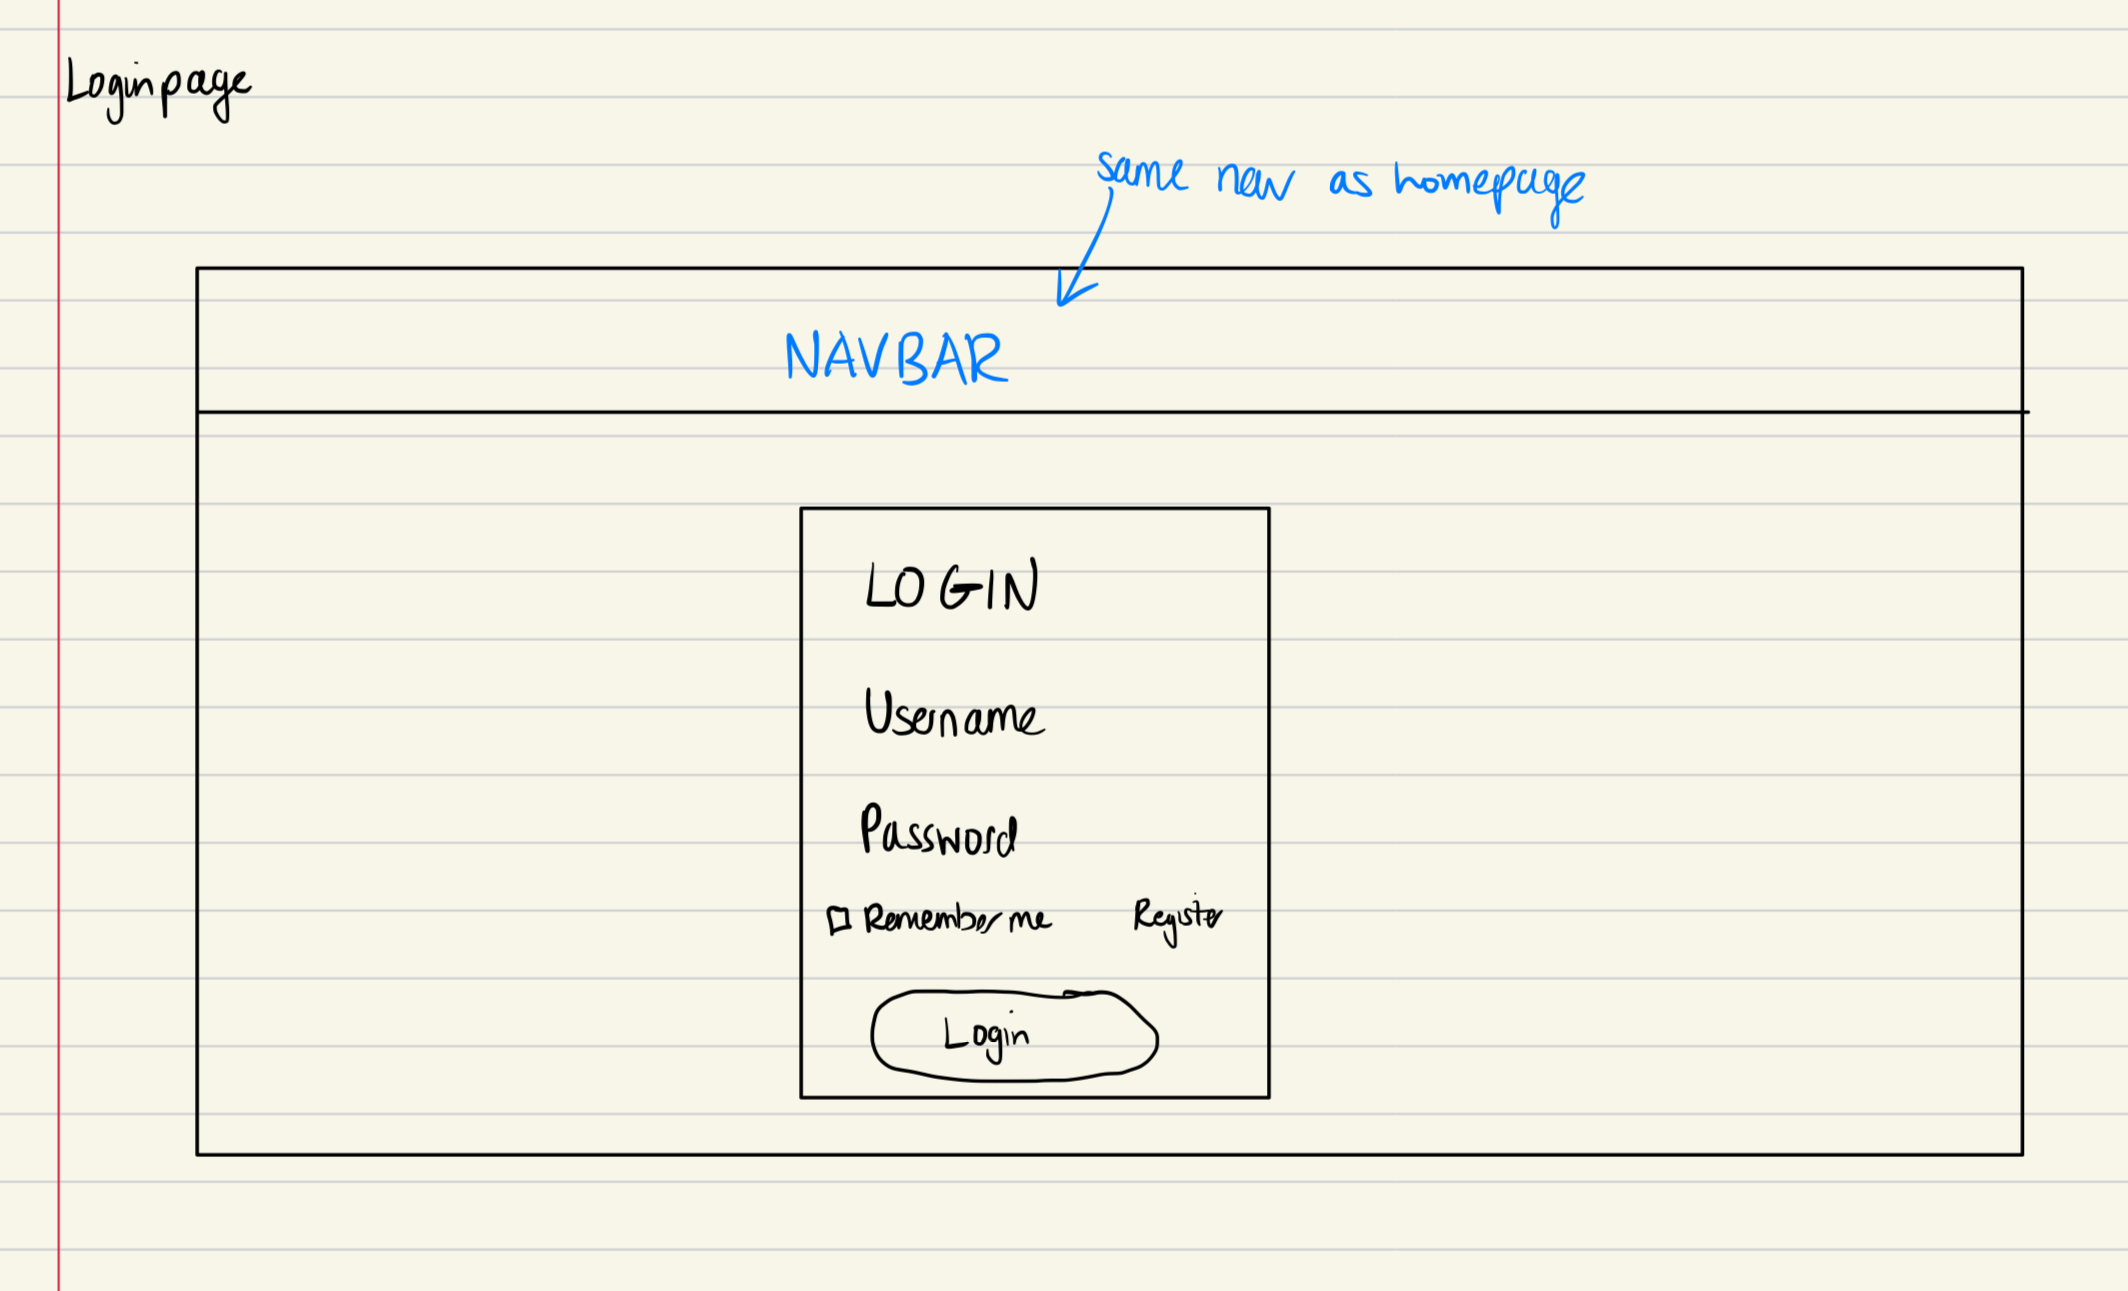 Login page
same nav as homepage
NAVBAR
LOGIN
Username
Password
Remember me Register
Login